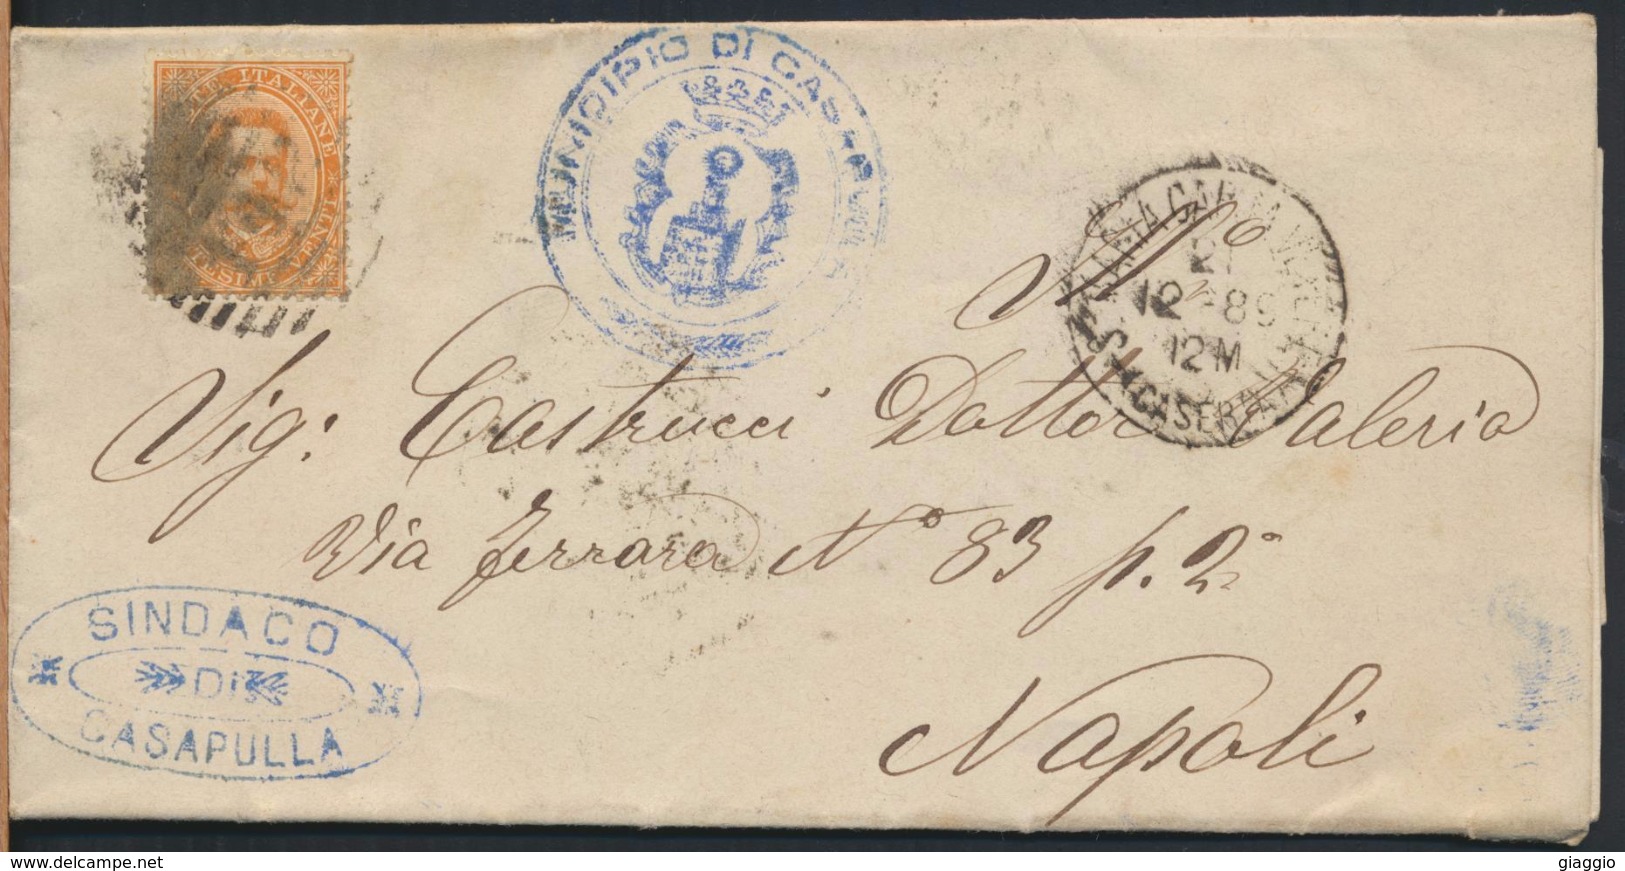 POSTE ITALIANE
CENTESIMI VENTI
MUNICIPIO DI CASAPULLA
S. MARIA CAPUA VETERE
21
12-89
12 M
(CASERTA)
Sig: Castrucci Dottor Valerio
Via Ferrara N° 83 p. 2°
Napoli
SINDACO
DI
CASAPULLA
www.delcampe.net
giaggio